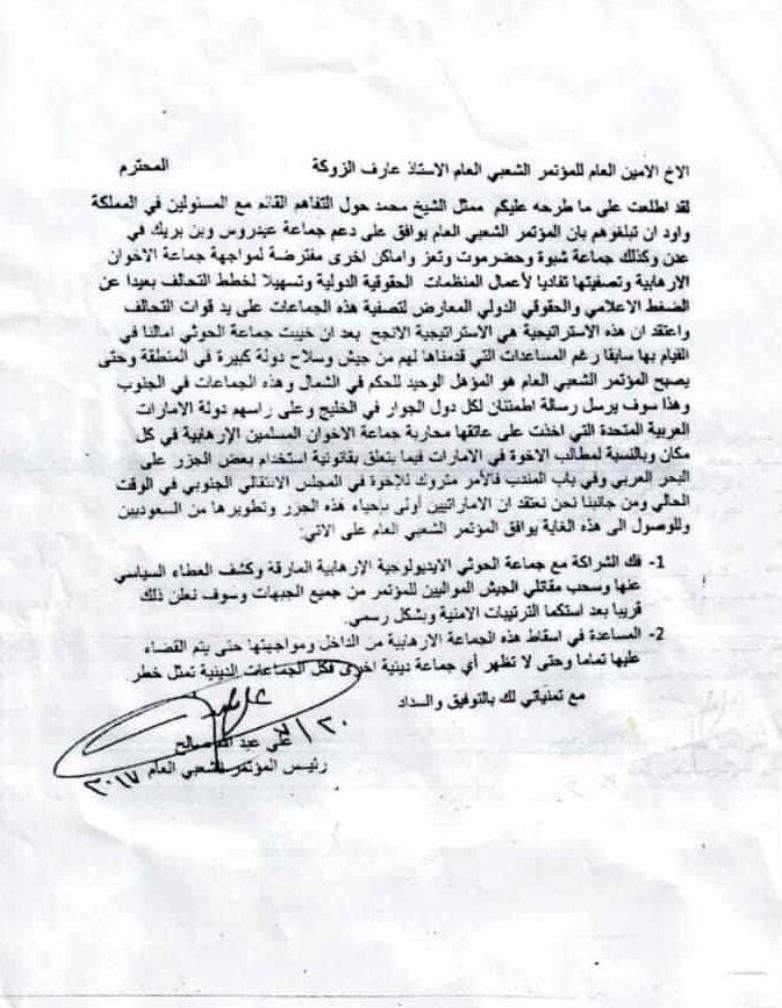 الاخ الامين العام للمؤتمر الشعبي العام الاستاذ عارف الزوكة المحترم
لقد اطلعت على ما طرحه عليكم ممثل الشيخ محمد حول التفاهم القائم مع المسئولين في المملكة
واود ان تبلغوهم بان المؤتمر الشعبي العام يوافق على دعم جماعة عيدروس وبن بريك في
عدن وكذلك جماعة شبوة وحضرموت وتعز واماكن اخرى مفترضة لمواجهة جماعة الاخوان
الارهابية وتصفيتها تفاديا لأعمال المنظمات الحقوقية الدولية وتسهيلا لخطط التحالف بعيدا عن
الضغط الاعلامي والحقوقي الدولي المعارض لتصفية هذه الجماعات على يد قوات التحالف
واعتقد ان هذه الاستراتيجية هي الاستراتيجية الانجح بعد ان خيبت جماعة الحوثي امالنا في
القيام بها سابقا رغم المساعدات التي قدمناها لهم من جيش وسلاح دولة كبيرة في المنطقة وحتى
يصبح المؤتمر الشعبي العام هو المؤهل الوحيد للحكم في الشمال وهذه الجماعات في الجنوب
وهذا سوف يرسل رسالة اطمئنان لكل دول الجوار في الخليج وعلى راسهم دولة الامارات
العربية المتحدة التي اخذت على عاتقها محاربة جماعة الاخوان المسلمين الإرهابية في كل
مكان وبالنسبة لمطالب الاخوة في الامارات فيما يتعلق بقانونية استخدام بعض الجزر على
البحر العربي وفي باب المندب فالأمر متروك للإخوة في المجلس الانتقالي الجنوبي في الوقت
الحالي ومن جانبنا نحن نعتقد ان الاماراتيين أولى بإحياء هذه الجزر وتطويرها من السعوديين
وللوصول الى هذه الغاية يوافق المؤتمر الشعبي العام على الاتي:
1- فك الشراكة مع جماعة الحوثي الايديولوجية الإرهابية المارقة وكشف الغطاء السياسي
عنها وسحب مقاتلي الجيش الموالين للمؤتمر من جميع الجبهات وسوف نعلن ذلك
قريبا بعد استكما الترتيبات الامنية وبشكل رسمي.
2- المساعدة في اسقاط هذه الجماعة الارهابية من الداخل ومواجهتها حتى يتم القضاء
عليها تماما وحتى لا تظهر أي جماعة دينية اخرى فكل الجماعات الدينية تمثل خطر
مع تمنياتي لك بالتوفيق والسداد
علي عبد الله صالح
رئيس المؤتمر الشعبي العام
٢٠١٧